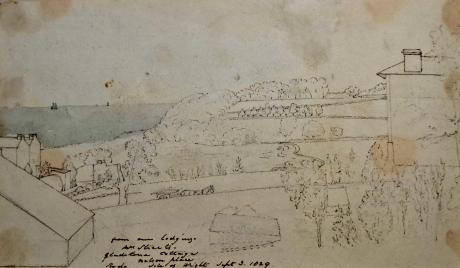 from our lodgings
Mrs
Gladstone Cottage
Nelson place
Ryde Isle of Wight Sept 3. 1829